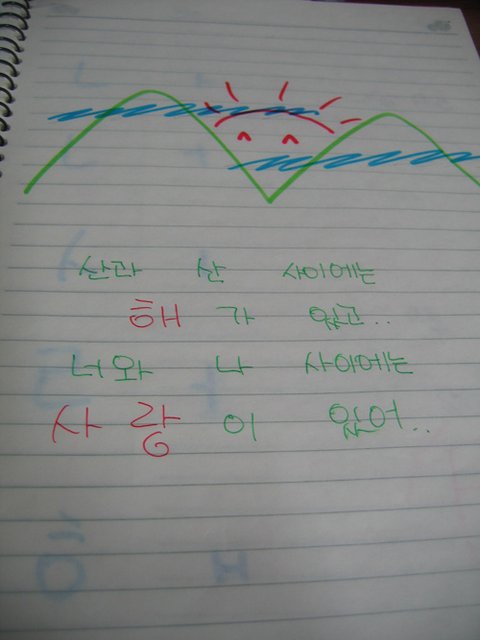 산과 산 사이에는
해 가 있고..
너와 나 사이에는
사 랑 이 있어..